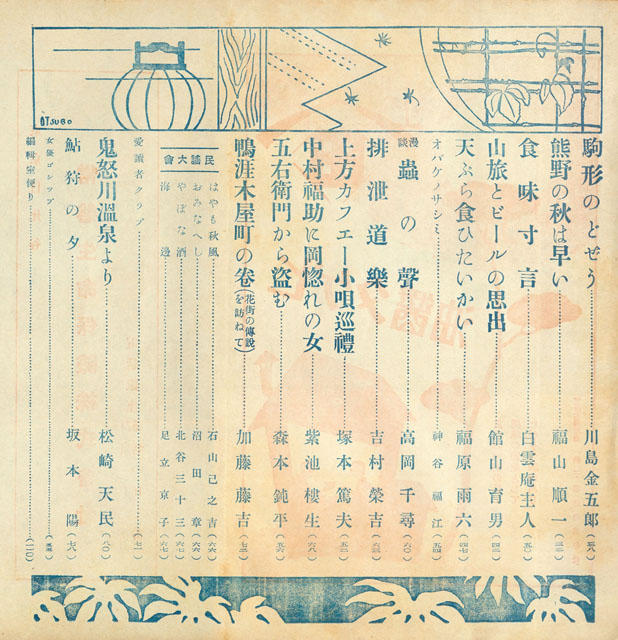 駒形のどぜう……川島金五郎(五八)
熊野の秋は早い……福山順一(三三)
食味寸言……白雲庵主人(五〇)
山旅とビールの思出……館山育男(四二)
天ぷら食ひたいかい……福原雨六(四七)
オバケノサシミ……神谷福江(五四)
漫談 蟲の聲……高岡千尋(六〇)
排泄道樂……吉村榮吉
上方カフエー小唄巡禮……塚本篤夫(五二)
中村福助に岡惚れの女……紫池樓生
五右衛門から盗む……森本鈍平(五六)
鴨涯木屋町の卷(花街の傳說を訪ねて)……加藤藤吉(七三)
民謠大會
はやも秋風……石山己之吉(六六)
おみなへし……沼田章(六六)
やぼな酒……北谷三十三(六七)
海邊……足立京子(六七)
愛讀者クラブ……(七一)
鬼怒川溫泉より……松崎天民(八〇)
鮎狩の夕……坂本陽(七八)
女優ゴシツプ
編輯室便り……(一二〇)
OTSUBO